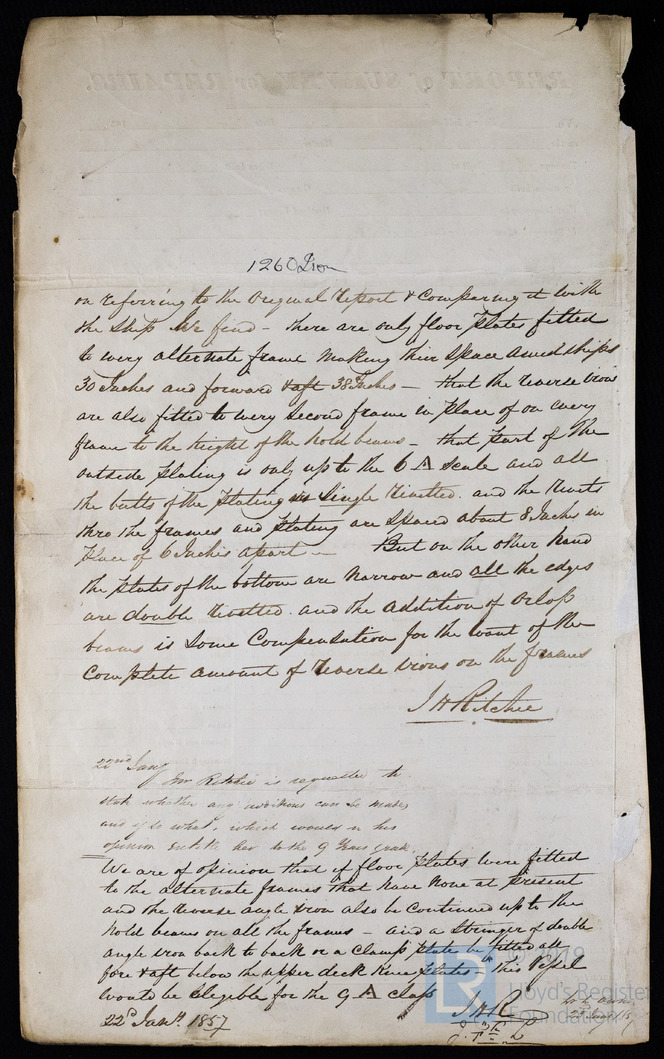 REPORT of SURVEY for REPAIRS.
1260 Iron
on referring to the Original report & Comparing it with
the Ship We find - there are only floor plates fitted
to every alternate frame making their space amidships
30 Inches and forward & aft 38 Inches - that the reverse irons
are also fitted to every second frame in place of on every
frame to the height of the hold beams - that part of the
outside plating is only up to the 6 A scale and all
the butts of the plating is Single rivetted. and the rivets
thro the frames and plating are spaced about 8 Inches in
place of 6 Inches apart - But on the other hand
the plates of the bottom are narrow and all the edges
are double rivetted. and the addition of Orlop
beams is some Compensation for the want of the
Complete amount of reverse irons on the frames
J H Ritchie
22nd Jany
Mr Ritchie is requested to
state whether any additions can be made,
and if so what, which would in his
opinion entitle her to the 9 Years grade.
We are of opinion that if floor plates were fitted
to the alternate frames that have none at present
and the reverse angle iron also be continued up to the
hold beams on all the frames - and a Stringer of double
angle iron back to back or a clamp plate be fitted all
fore & aft below the upper deck knee plates - this Vessel
would be Elegible for the 9 A Class
22d Jany. 1857
J H R
© 2019
Lloyd's Register
Foundation